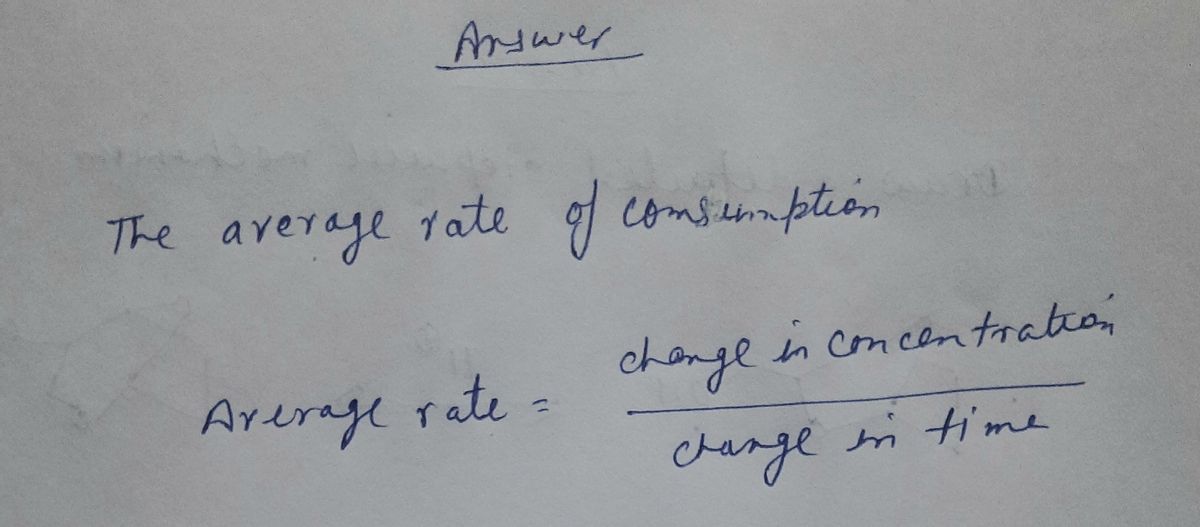 Answer
The average rate of consumption
Average rate = change in concentration
change in time